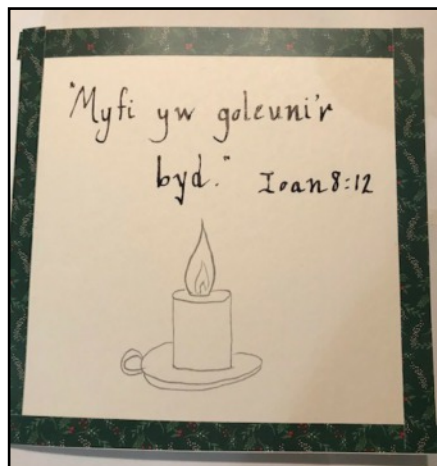 "Myfi yw goleuni'r
byd." Ioan 8:12